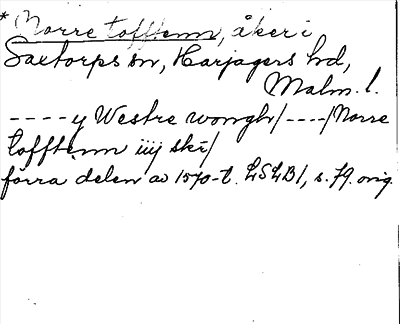 * Norre tofftenn, åker i
Saxtorps sn, Harjagers hd,
Malm. l.
- - - - y Westre wongh/ - - - -/Norre
tofftenn iiij skr/
förra delen av 1570-t. LSLB1, s. 79. orig.